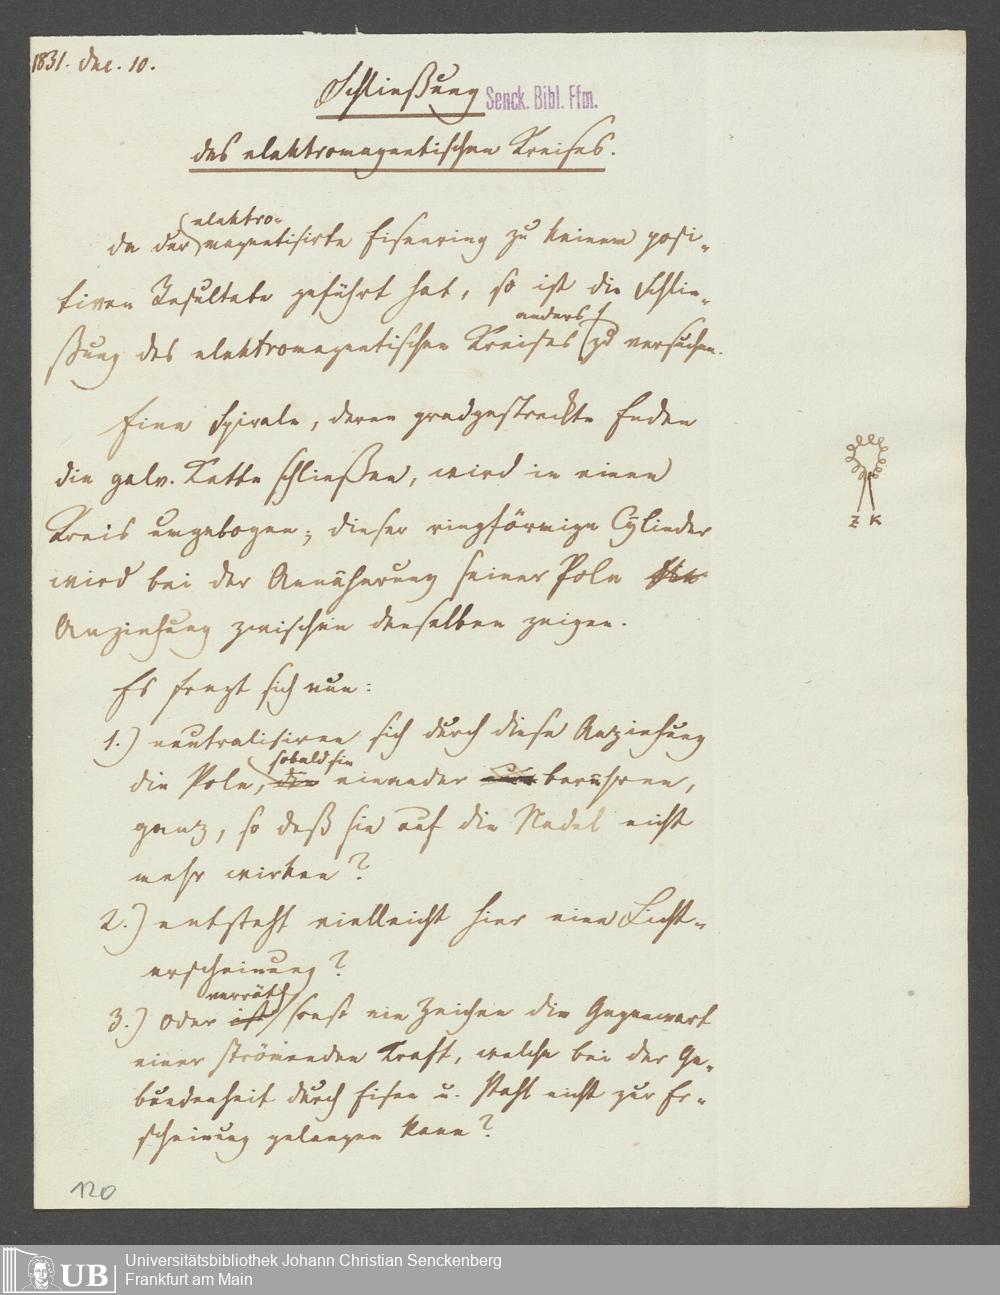 1831. Dec. 10.
Schließung
Senck. Bibl. Ffm.
des elektromagnetischen Kreises.
elektro-
Da der magnetisirte Eisenring zu keinem posi-
tiven Resultate geführt hat, so ist die Schlie-
anders
ßung des elektromagnetischen Kreises zu versuchen.
Eine Spirale, deren gradgestreckte Enden
die galv. Kette schließen, wird in einen
Kreis umgebogen; dieser ringförmige Cylinder
wird bei der Annäherung seiner Pole
Anziehung zwischen denselben zeigen.
Z K
Es fragt sich nun:
1.) neutralisiren sich durch diese Anziehung
sobald sie
die Pole, die einander berühren,
ganz, so daß sie auf die Nadel nicht
mehr wirken?
2.) entsteht vielleicht hier eine Licht-
erscheinung?
verräth
3.) oder ist sonst ein Zeichen die Gegenwart
einer strömenden Kraft, welche bei der Ge-
bundenheit durch Eisen u. Stahl nicht zur Er-
scheinung gelangen kann?
120
UB
Universitätsbibliothek Johann Christian Senckenberg
Frankfurt am Main